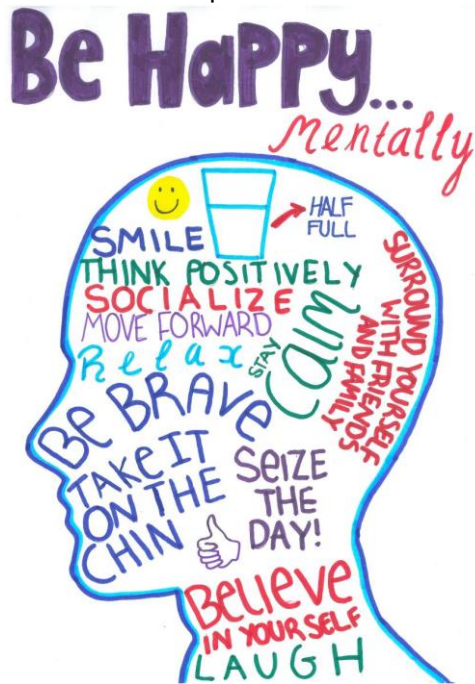 Be Happy...
Mentally
HALF
FULL
SMILE
THINK POSITIVELY
SOCIALIZE
MOVE FORWARD
Relax
STAY
CALM
SURROUND YOURSELF
WITH FRIENDS
AND FAMILY
BE BRAVE
TAKE IT
ON THE
CHIN
SEIZE
THE
DAY!
BELIEVE
IN YOURSELF
LAUGH